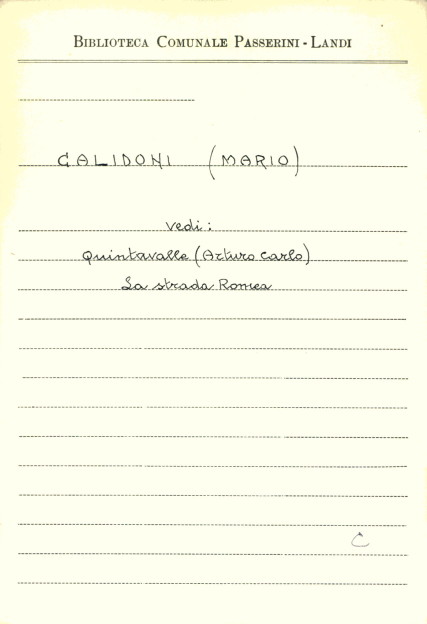 BIBLIOTECA COMUNALE PASSERINI - LANDI
CALIDONI (MARIO)
vedi:
Quintavalle (Arturo Carlo)
La strada Romea
C